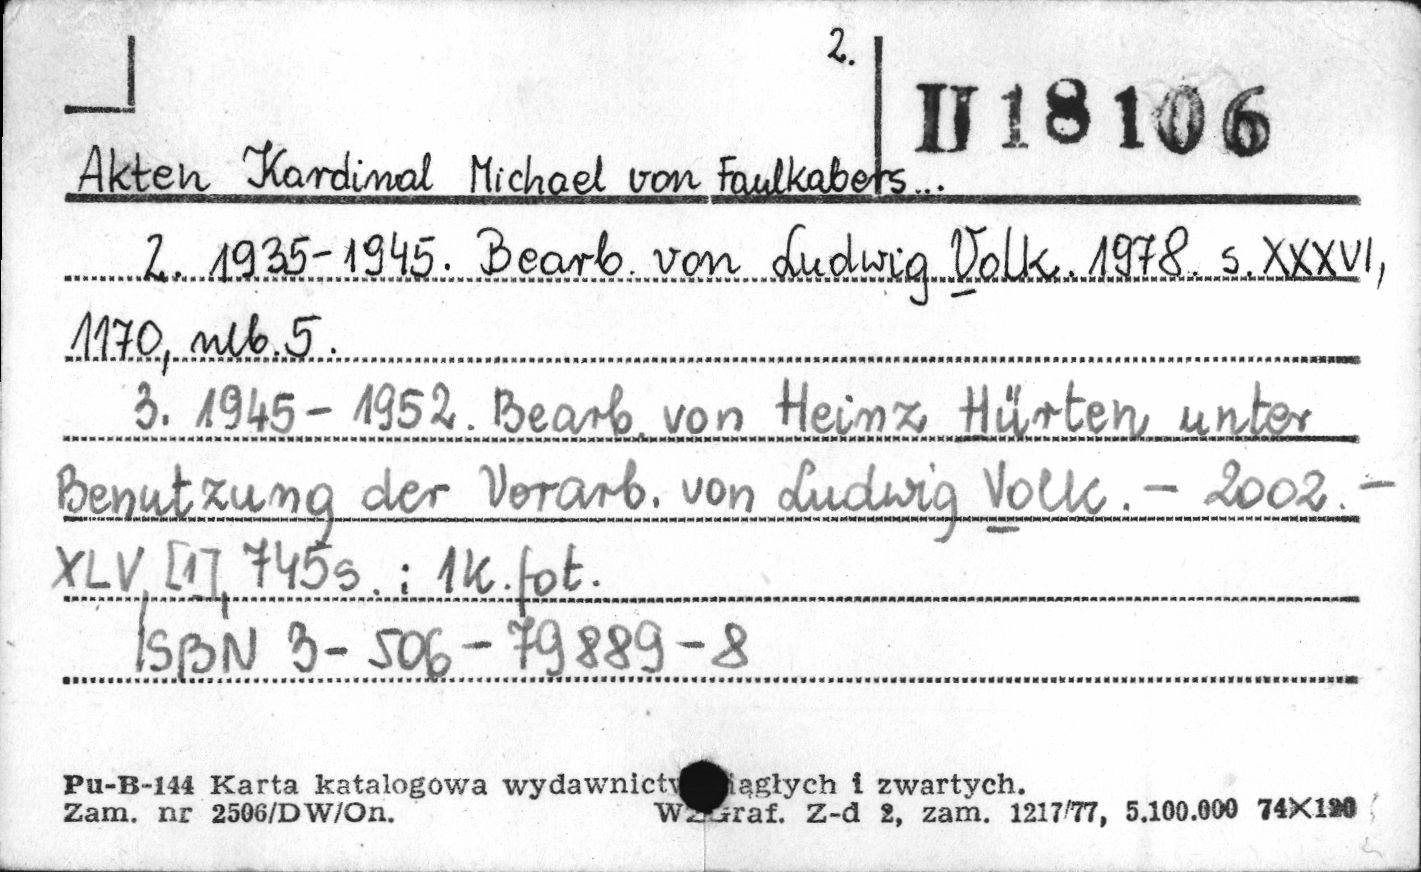 2.
II 18106
Akten Kardinal Michael von Faulkabers...
2. 1935-1945. Bearb. von Ludwig Volk. 1978. s. XXXVI,
1170, nlb. 5.
3. 1945-1952. Bearb. von Heinz Hürten unter
Benutzung der Vorarb. von Ludwig Volk. - 2002. -
XLV, [1], 745 s. : 1 k. fot.
ISBN 3-506-79889-8
Pu-B-144 Karta katalogowa wydawnict iągłych i zwartych.
Zam. nr 2506/DW/On. WZGraf. Z-d 2, zam. 1217/77, 5.100.000 74×120